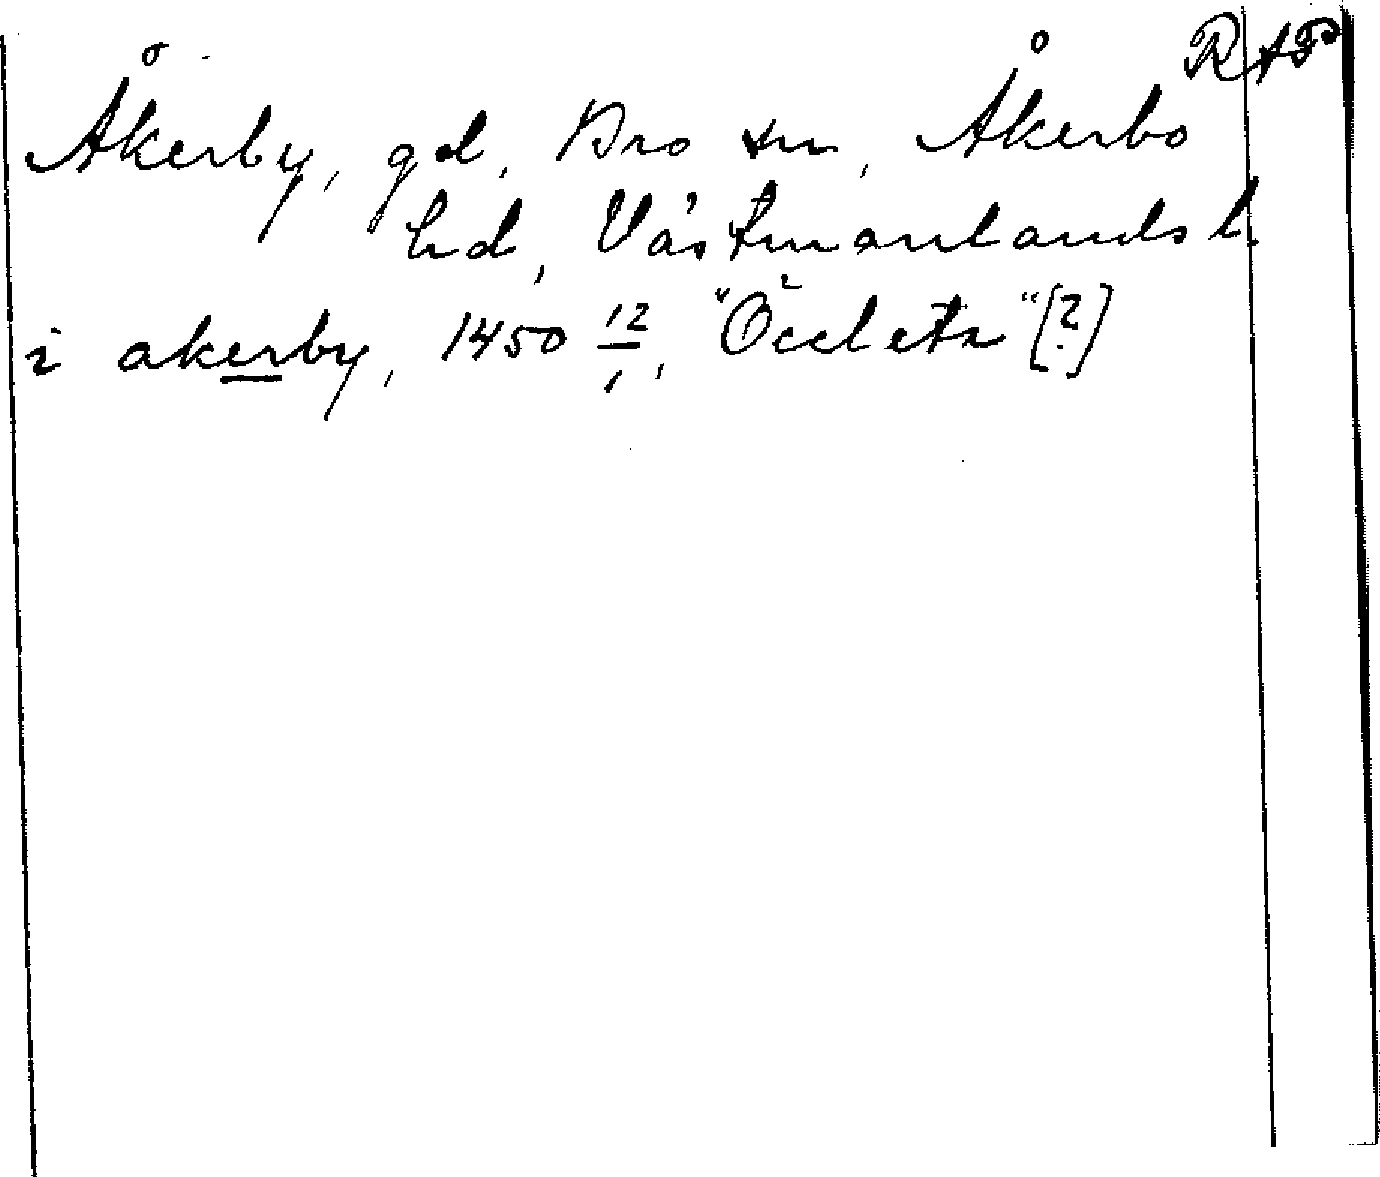 RAP
Åkerby, gd, Bro sn, Åkerbo
hd, Västmanlands l.
i akerby, 1450 12/1, "Öecleta" [?]